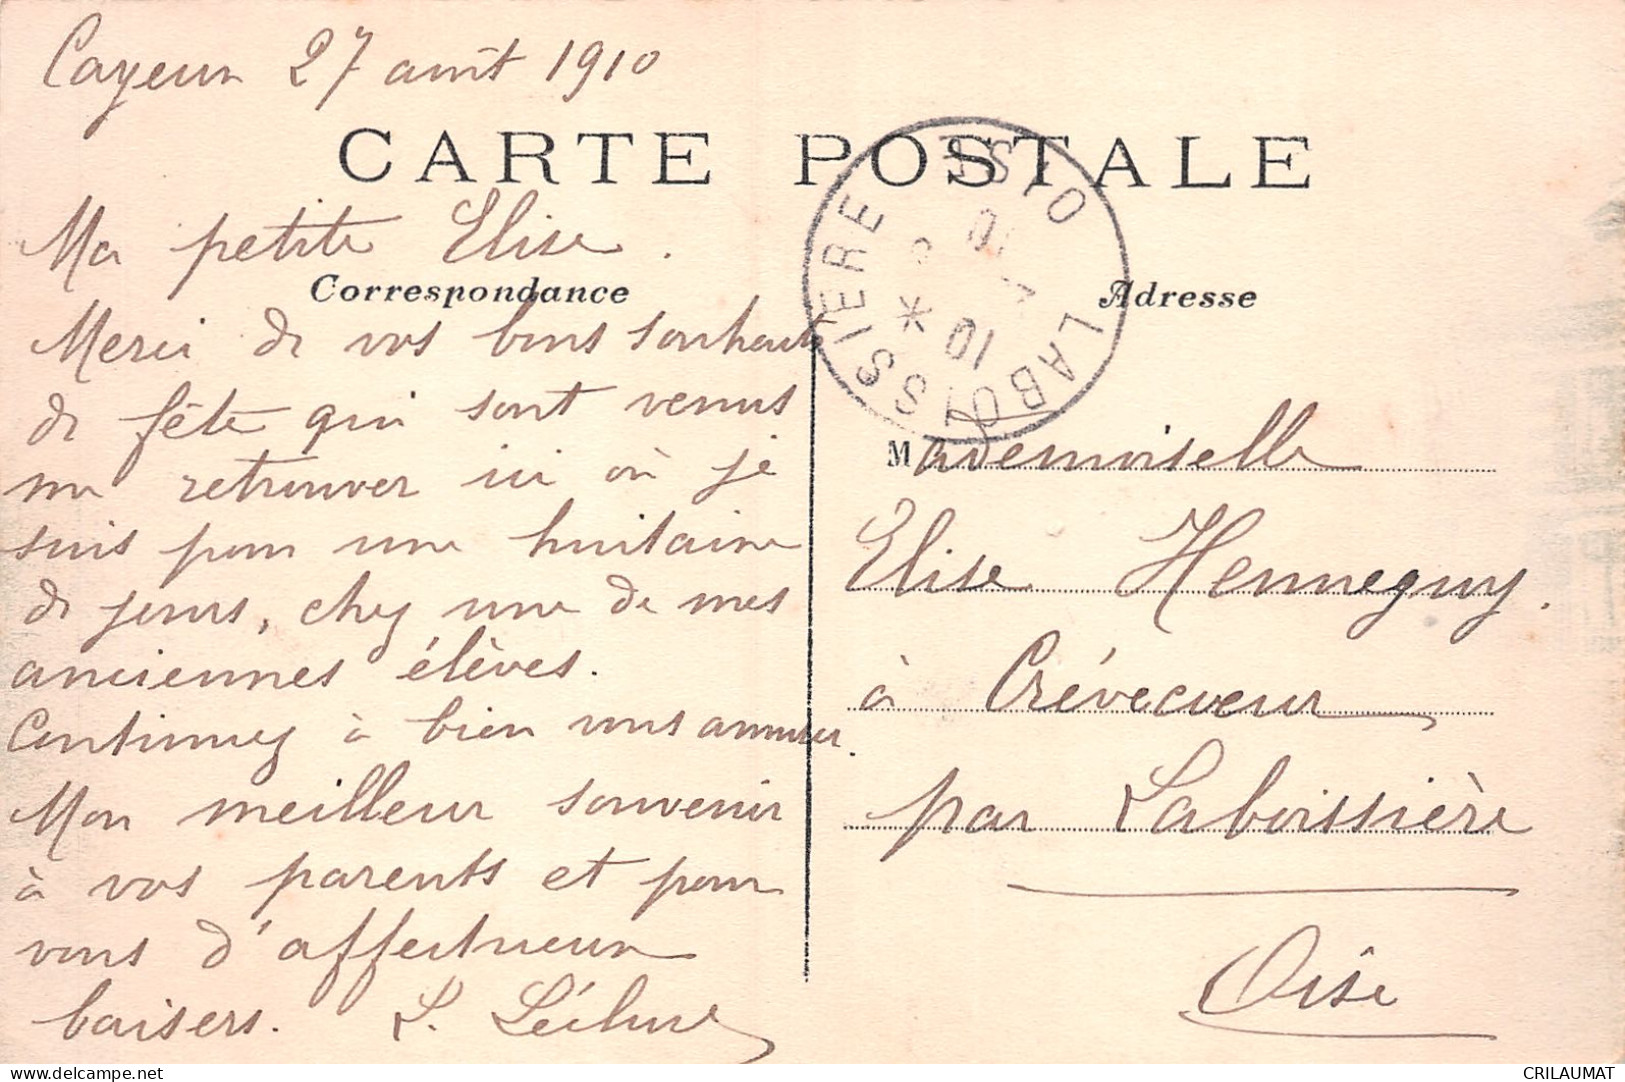 Cayeux 27 août 1910
CARTE POSTALE
Ma petite Elise.
Correspondance
Merci de vos bons souhaits
de fête qui sont venus
me retrouver ici où je
suis pour une huitaine
de jours, chez une de mes
anciennes élèves.
Continuez à bien vous amuser.
Mon meilleur souvenir
à vos parents et pour
vous d'affectueux
baisers. L.
LABOISSIERE OISE
* 10
Adresse
Mademoiselle
Elise Henneguy.
à Crévecoeur
par Laboissière
Oise
delcampe.net
CRILAUMAT